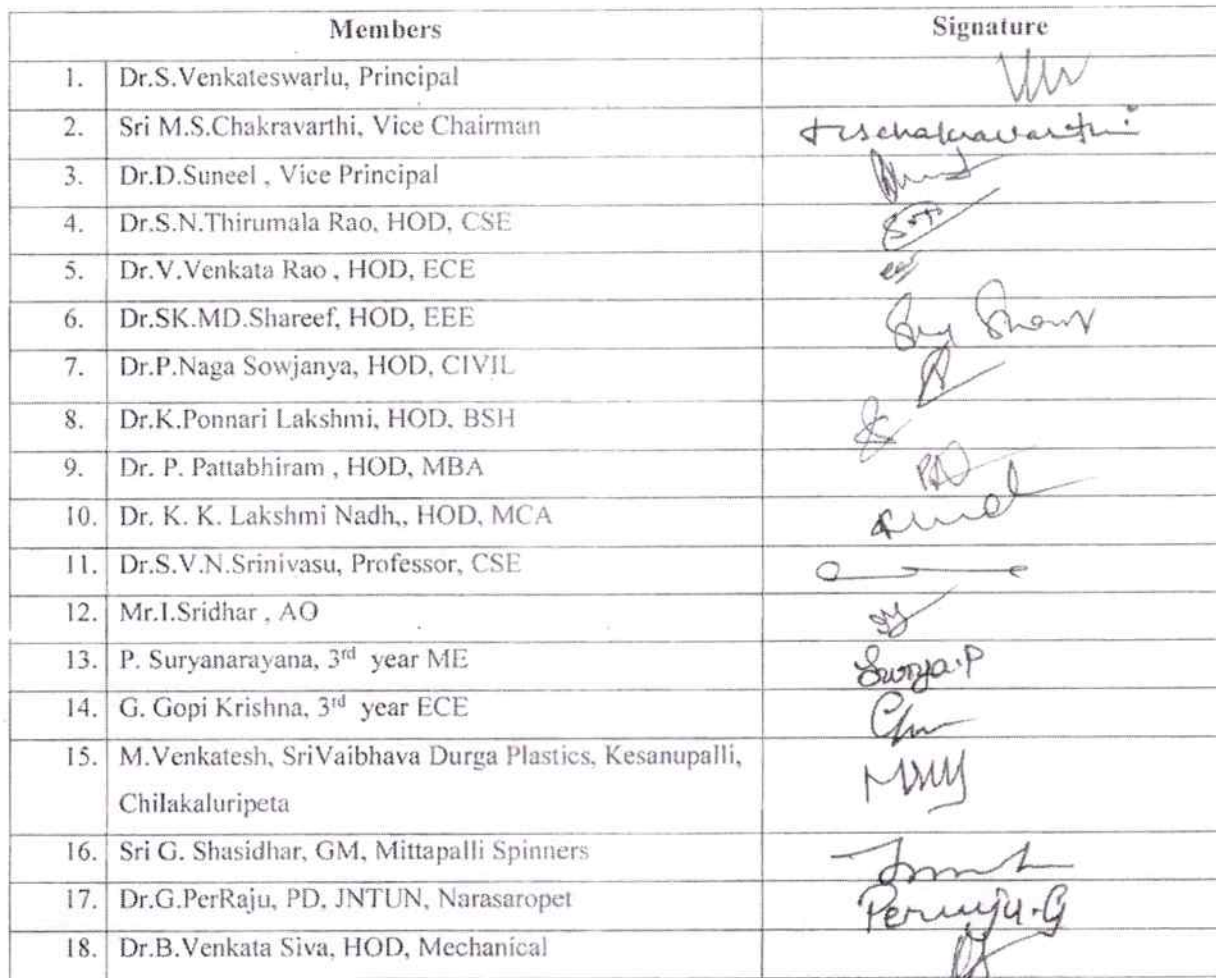 Members Signature
1. Dr.S.Venkateswarlu, Principal
2. Sri M.S.Chakravarthi, Vice Chairman
3. Dr.D.Suneel , Vice Principal
4. Dr.S.N.Thirumala Rao, HOD, CSE
5. Dr.V.Venkata Rao , HOD, ECE
6. Dr.SK.MD.Shareef, HOD, EEE
7. Dr.P.Naga Sowjanya, HOD, CIVIL
8. Dr.K.Ponnari Lakshmi, HOD, BSH
9. Dr. P. Pattabhiram , HOD, MBA
10. Dr. K. K. Lakshmi Nadh,, HOD, MCA
11. Dr.S.V.N.Srinivasu, Professor, CSE
12. Mr.I.Sridhar , AO
13. P. Suryanarayana, 3rd year ME Surya.P
14. G. Gopi Krishna, 3rd year ECE
15. M.Venkatesh, SriVaibhava Durga Plastics, Kesanupalli,
Chilakaluripeta
16. Sri G. Shasidhar, GM, Mittapalli Spinners
17. Dr.G.PerRaju, PD, JNTUN, Narasaropet
18. Dr.B.Venkata Siva, HOD, Mechanical